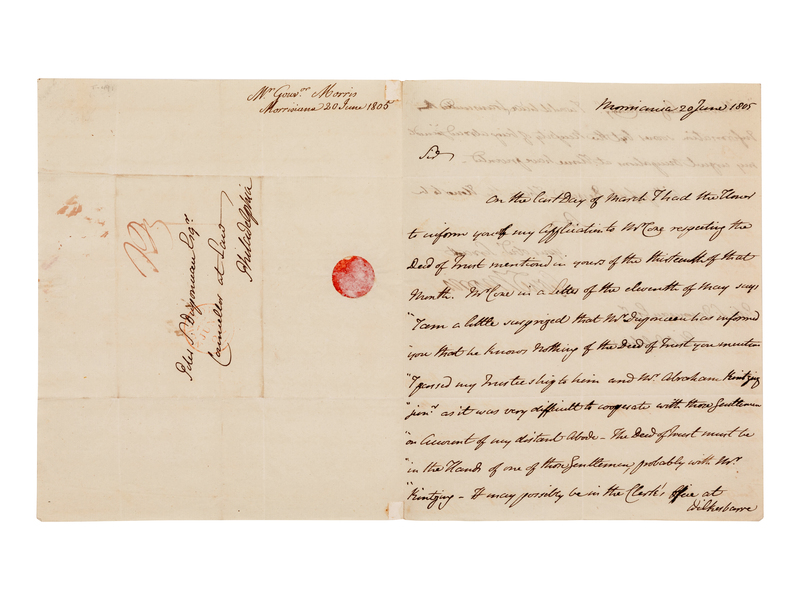 Mr Gouvr Morris
Morrisiana 20 June 1805
Peter S. Duponceau Esqr.
Councellor at Law
Philadelphia
Morrisania 20 June 1805
Sir
On the last Day of March I had the Honor
to inform you of my Application to Mr Coxe respecting the
Deed of Trust mentioned in yours of the thirteenth of that
Month. Mr Coxe in a Letter of the eleventh of May says
"I am a little surprized that Mr Duponceau has informed
"you that he knows Nothing of the Deed of Trust you mention
"I passed my Trusteeship to him and Mr. Abraham Kintzing
"junr as it was very difficult to cooperate with those Gentlemen
"on Account of my distant Abode – The Deed of Trust must be
"in the Hands of one of those Gentlemen, probably with Mr.
"Kintzing – It may possibly be in the Clerk's Office at
Wilkesbarre